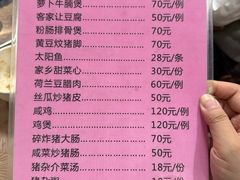 萝卜牛腩煲 70元/例
客家让豆腐 50元/例
粉肠排骨煲 70元
黄豆炆猪脚 70元
太阳鱼 28元/条
家乡甜菜心 30元/份
荷兰豆腊肉 60元/例
丝瓜炒猪皮 50元
咸鸡 120元/例
鸡煲 120元/例
碎炸猪大肠 70元
咸菜炒猪肠 50元
猪杂介菜汤 18元/份
猪杂粥 18元/份